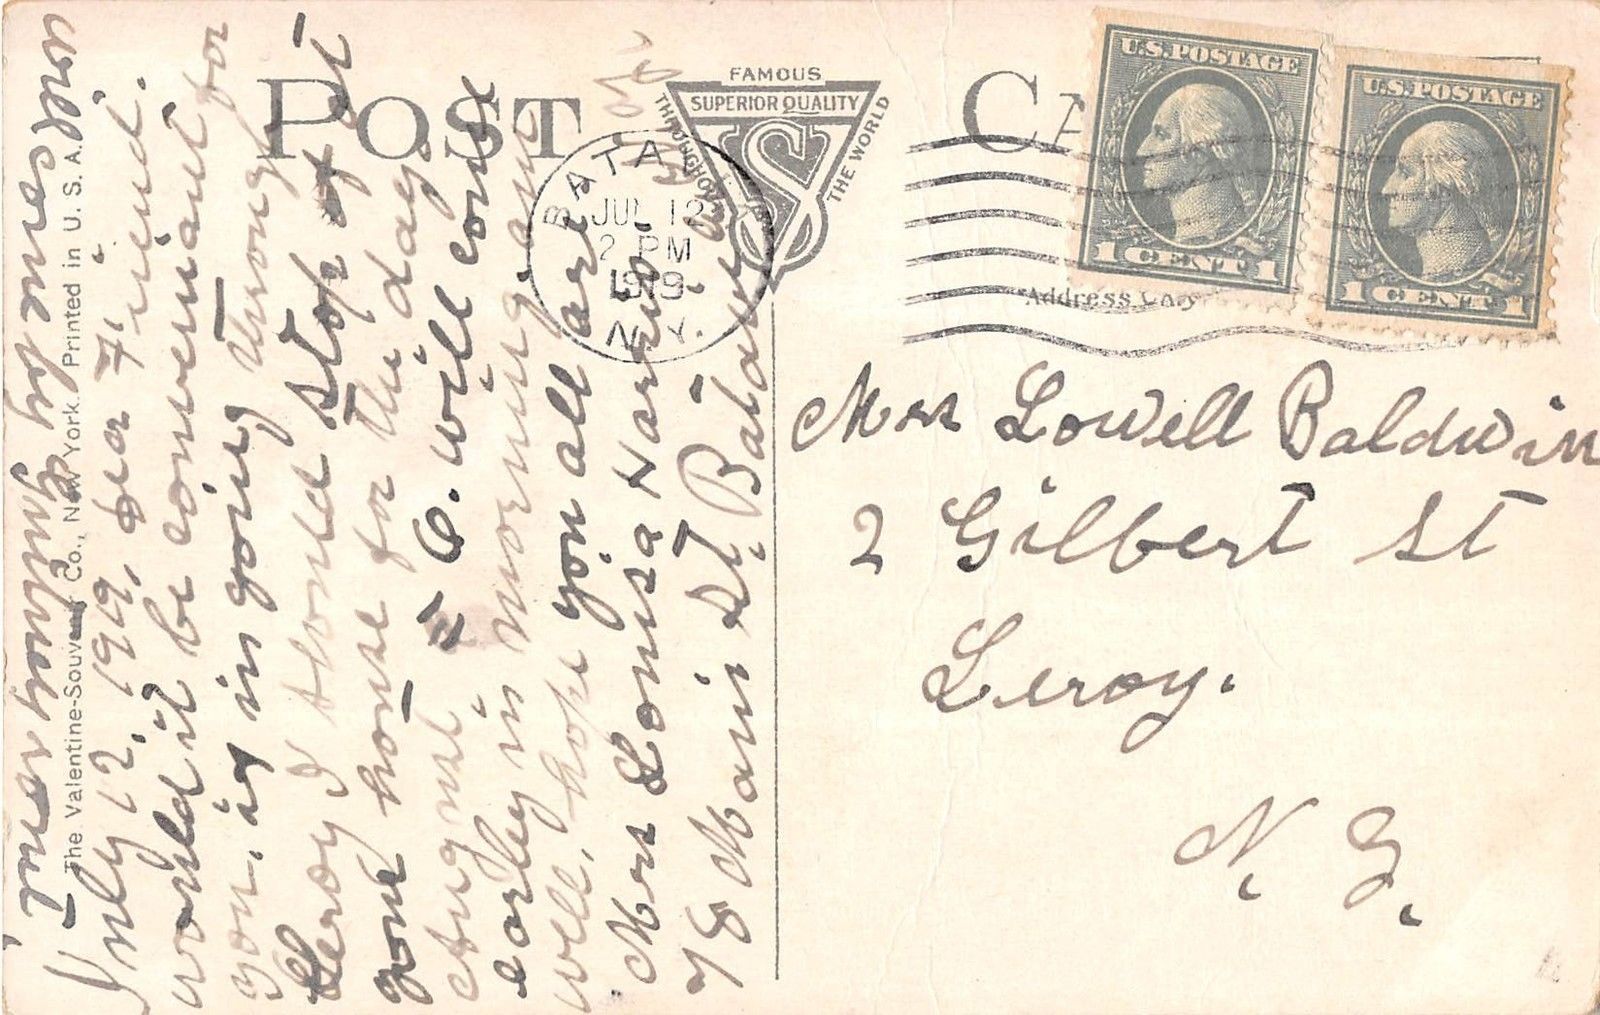 July 12, 1919, Dear Friend.
would it be convenient for
you, if in going through
Leroy I should stop at
your house for the day
August 6. will come
early in morning am
well, hope you all are
Mrs Louisa Harmon
78 Main St. Batavia
The Valentine-Souvenir Co., New York. Printed in U. S. A.
POST CA
FAMOUS
SUPERIOR QUALITY
THROUGHOUT
THE WORLD
BATAVIA
JUL 12
2 PM
1919
N.Y.
U.S. POSTAGE
1 CENT 1
U.S. POSTAGE
1 CENT 1
Address Only
Mrs Lowell Baldwin
2 Gilbert St
Leroy.
N. Y.